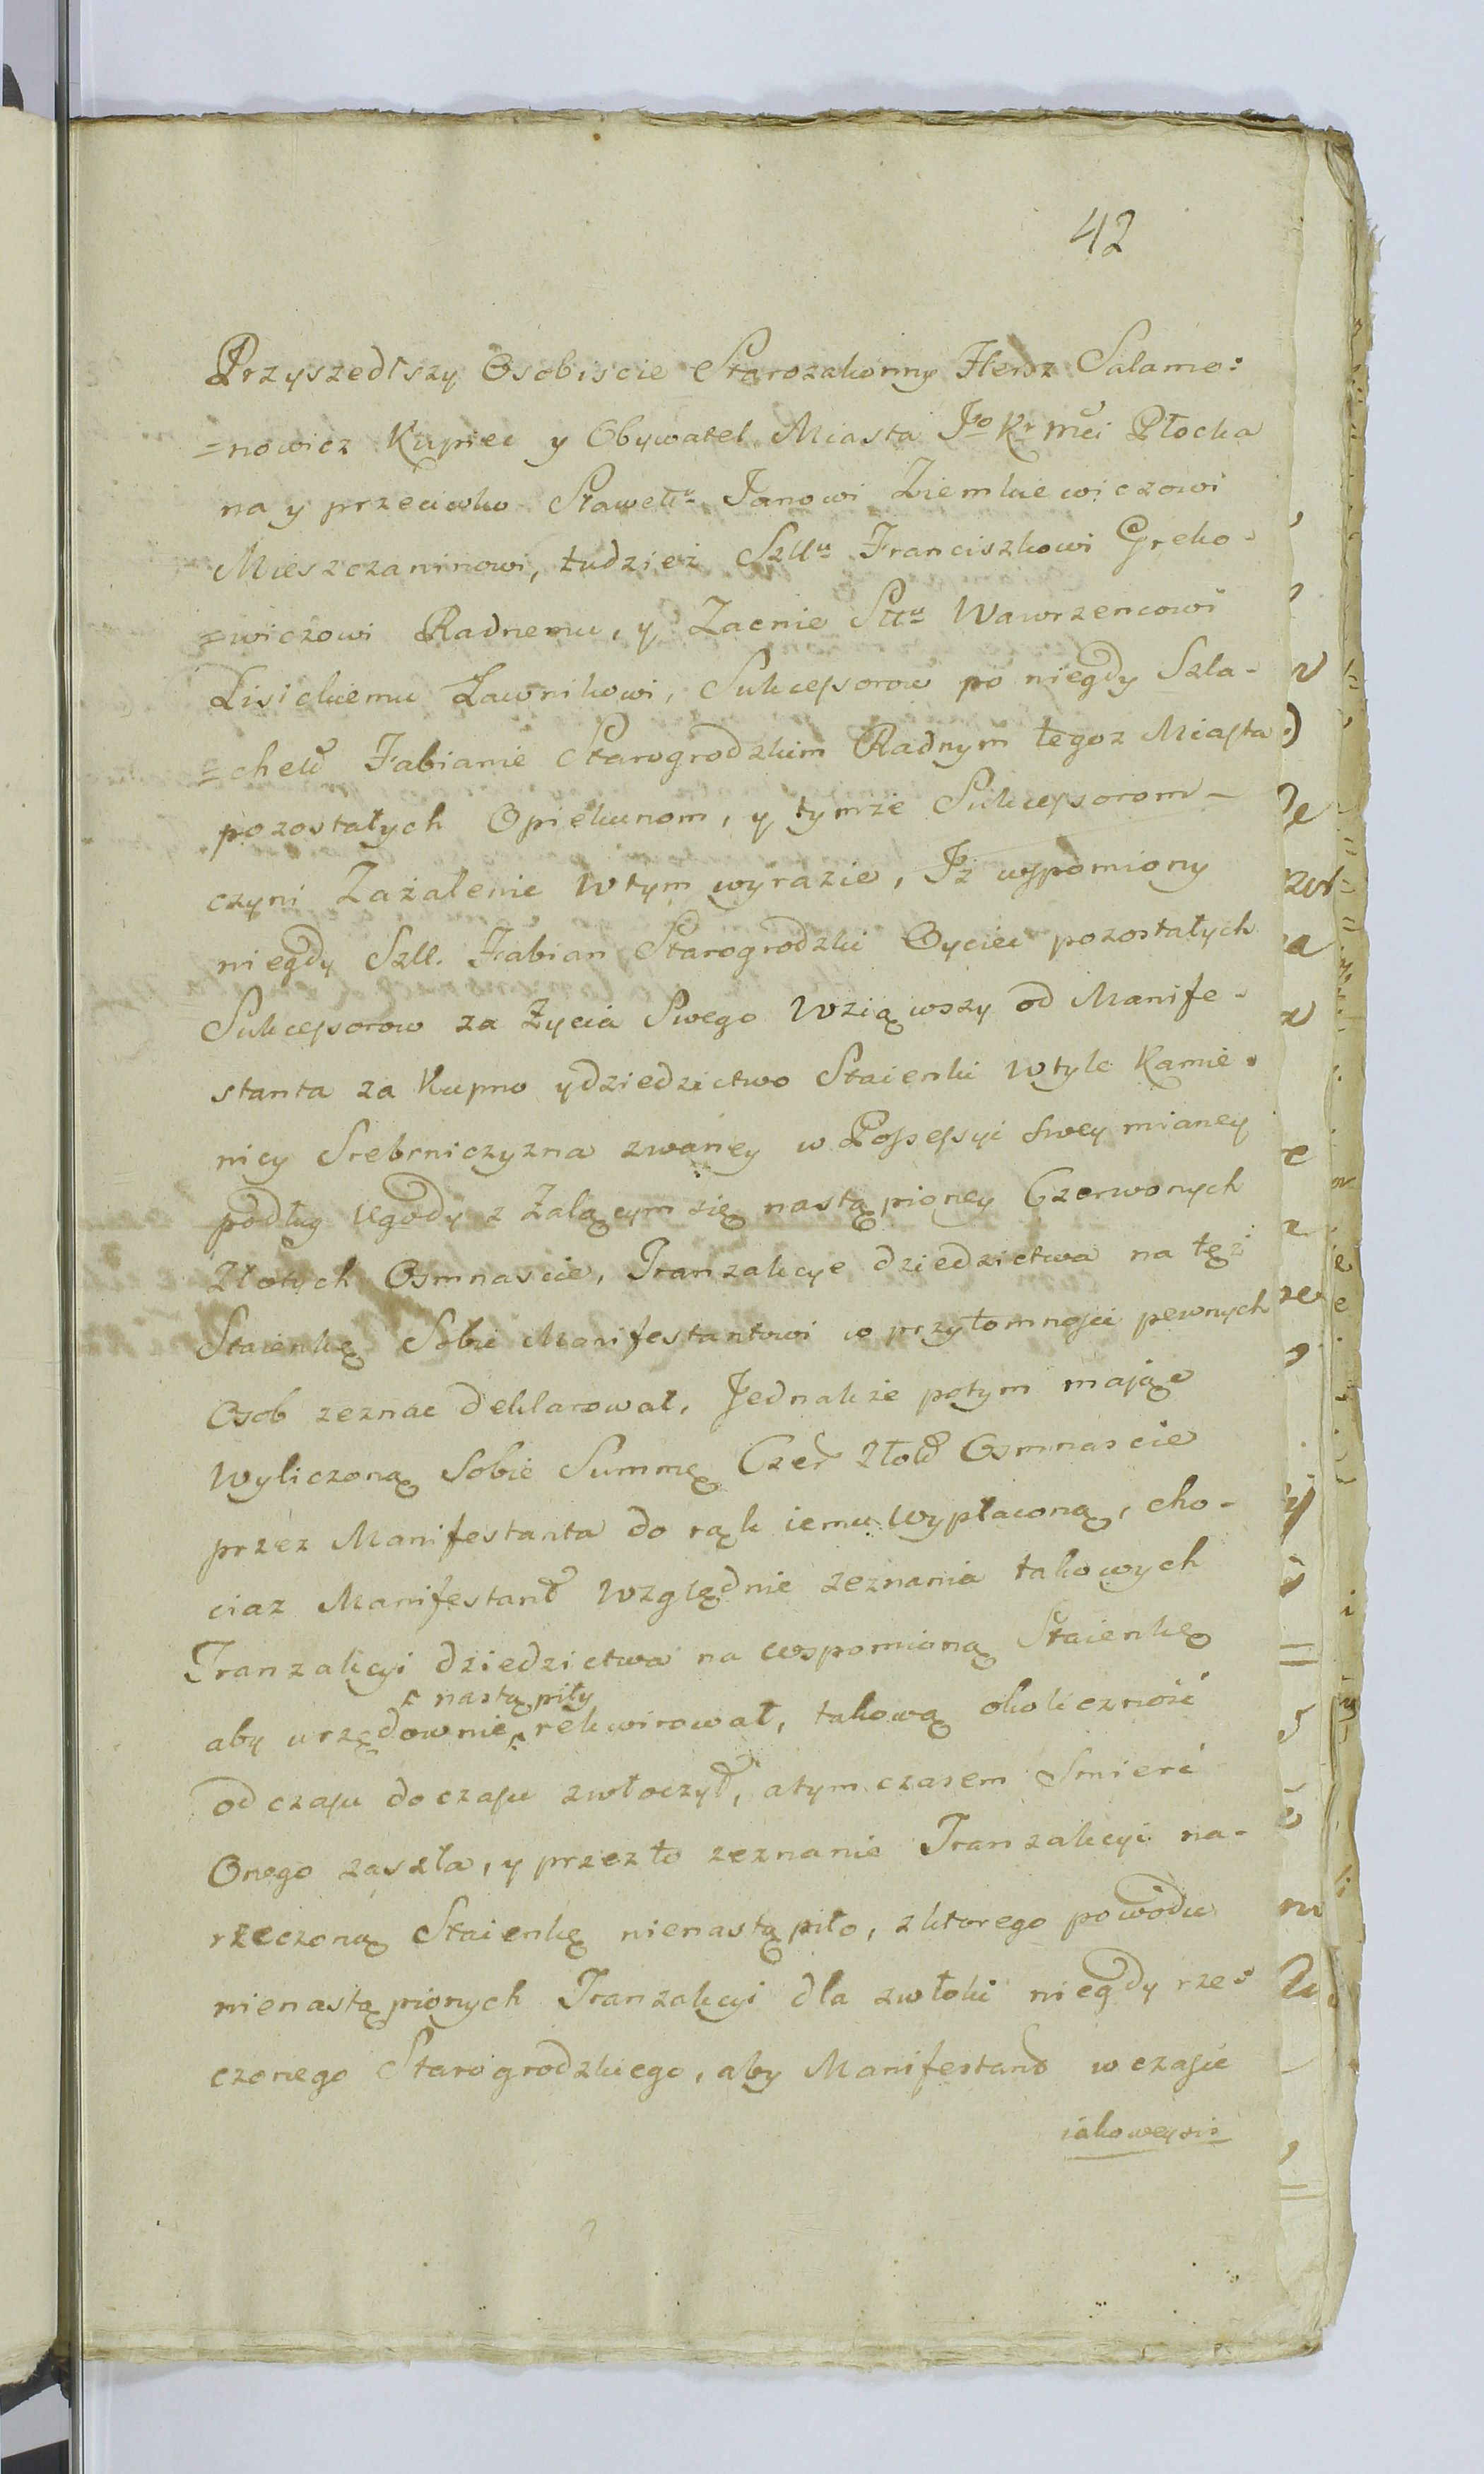 42
Przyszedłszy Osobiscie Starozakonny Hersz Salamo:
=nowicz Kupiec y Obywatel Miasta Jgo Kr Mci Płocka
na y przeciwko Sławetu Janowi Ziemkiewiczowi
Mieszczaninowi, tudzież Szllu Franciszkowi Greko-
=wiczowi Radnemu, y Zacnie Słłu Wawrzencowi
Lisickiemu Ławnikowi, Sukcessorow po niegdy Szla-
=chet Fabianie Starogrodzkim Radnym tegoz Miasta
pozostałych Opiekunom, y tymże Sukcessorom-
czyni Zażalenie w tym wyrazie, Iż wspomiony
niegdy Szll. Fabian Starogrodzki Oyciec pozostałych
Sukcessorow za Życia Swego Wziąwszy od Manife-
stanta za Kupno y dziedzictwo Staienki w tyle Kamie-
nicy Srebrniczyzna zwaney w Possessyi swey mianey
podług Ugody z Zalącym się nastąpioney Czerwonych
Złotych Osmnascie, Tranzakcye dziedzictwa na tęż
Staienkę Sobie Manifestantowi w przytomnosci pewnych
Osob zeznac deklarował, Jednakże potym mając
Wyliczoną Sobie Summę Czer Złot Osmnascie
przez Manifestanta do rąk iemu Wypłaconą, cho-
ciaz Manifestant Względnie zeznania takowych
Tranzakcyi dziedzictwa na wspomioną Staienkę
nastąpiły
aby urzędownie rekwirował, takową okoliczność
od czasu do czasu zwłoczył, a tym czasem Smierć
Onego zaszła, y przez to zeznanie Tranzakcyi na-
rzeczoną Staienkę nienastąpiło, z ktorego powodu
nienastąpionych Tranzakcyi dla zwłoki niegdy rze-
czonego Starogrodzkiego, aby Manifestant w czasie
iakoweysi